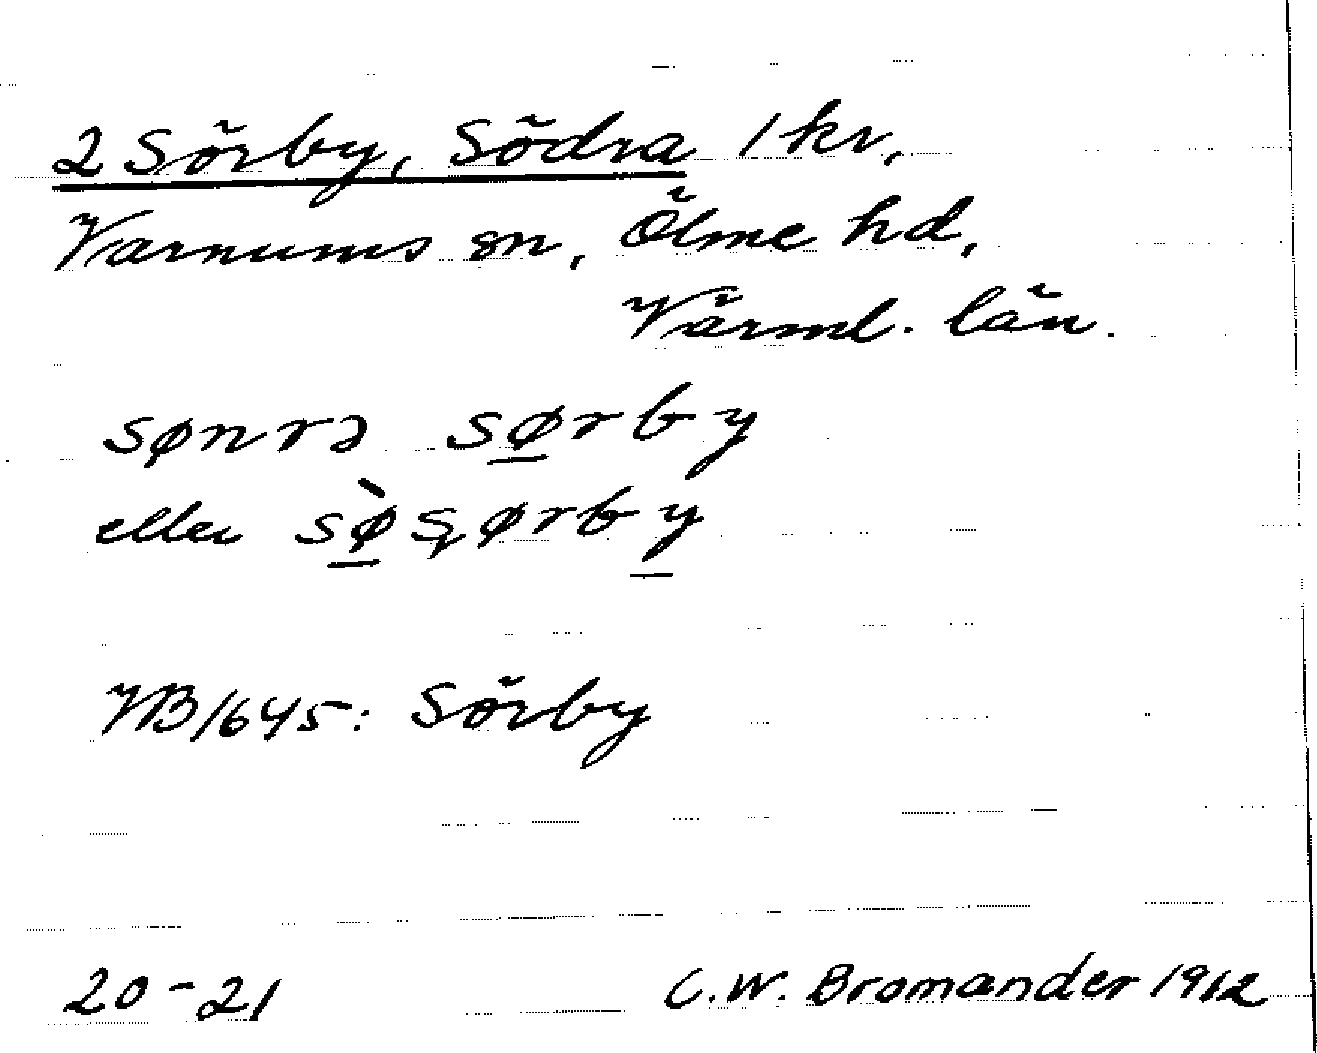 2 Sörby, Södra 1 kr,
Varnums sn, Ölme hd,
Värml. län.
sønrə sørby
eller sø̀ʂørby
VB/645: Sörby
20-21 C. W. Bromander 1962